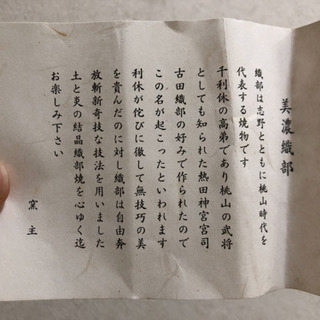 美濃織部
織部は志野とともに桃山時代を
代表する焼物です
千利休の高弟であり桃山の武将
としても知られた熱田神宮宮司
古田織部の好みで作られたので
この名が起こったといわれます
利休が侘びに徹して無技巧の美
を貴んだのに対し織部は自由奔
放斬新奇技な技法を用いました
土と炎の結晶織部焼を心ゆく迄
お楽しみ下さい
窯主